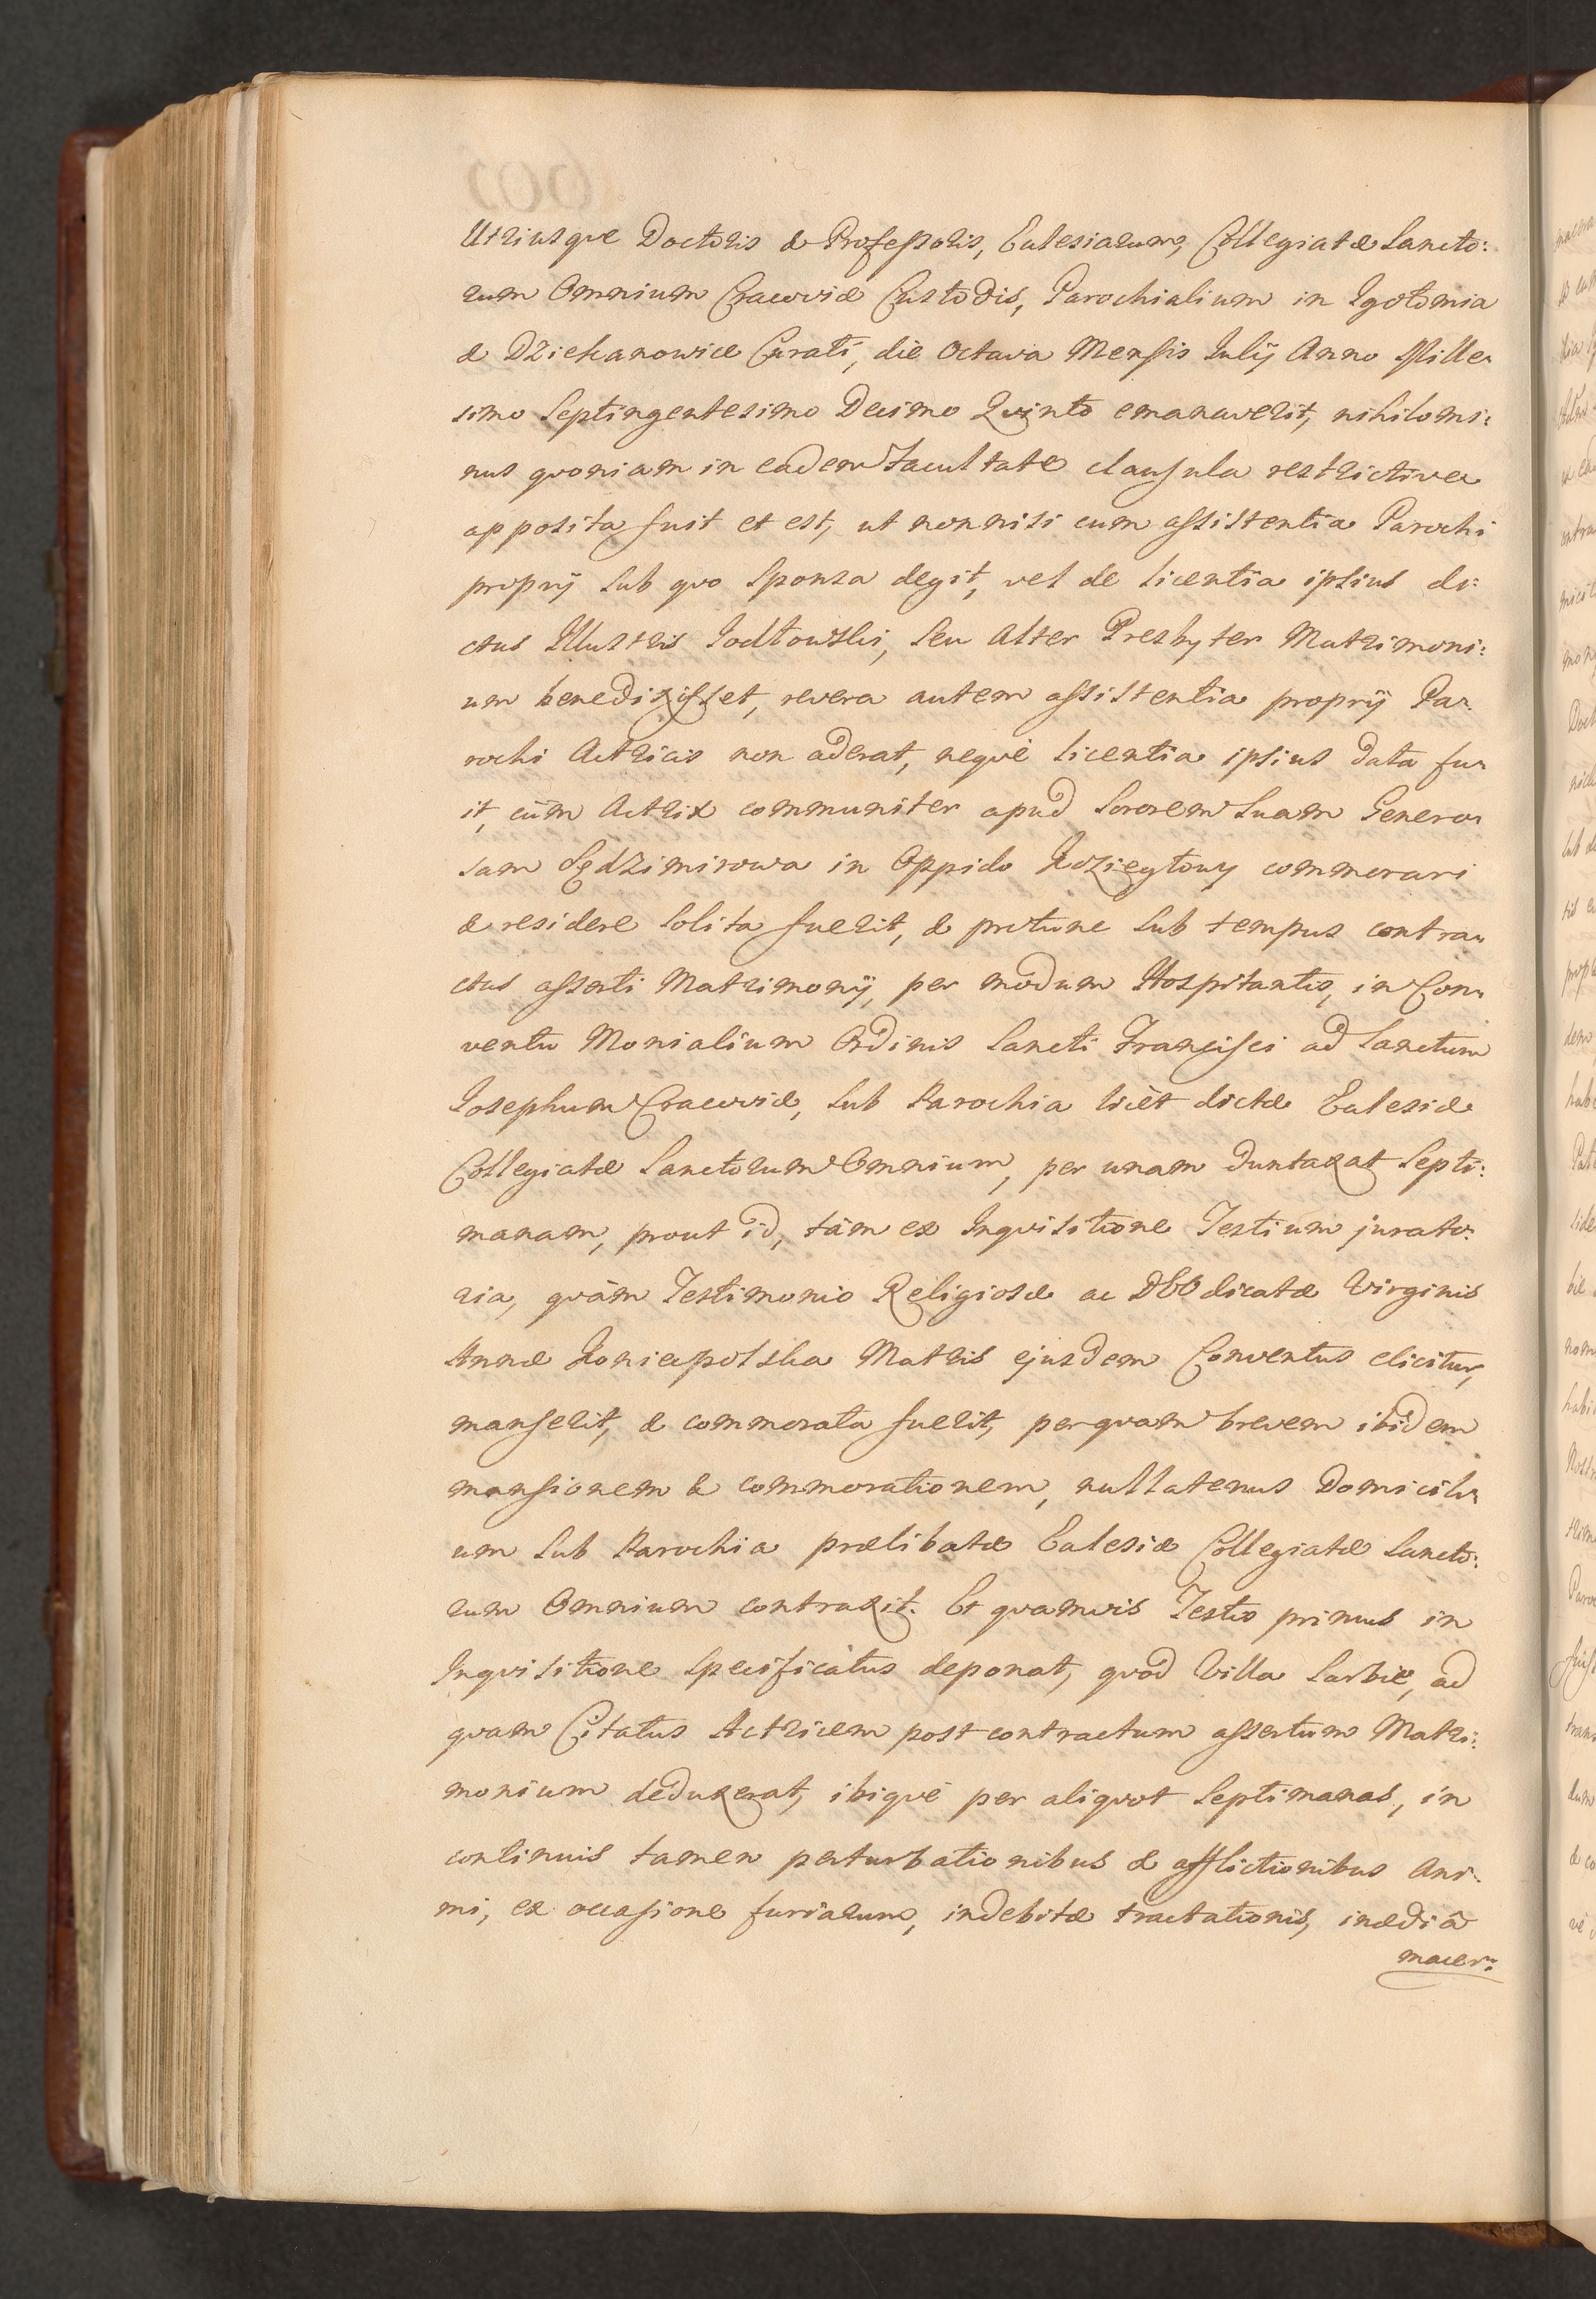 Utriusque Doctoris & Professoris, Ecclesiarum, Collegiatæ Sancto:
rum Omnium Cracoviæ Custodis, Parochialium in Igołomia
& Dziekanowice Curati, die Octava Mensis Julij Anno Mille:
simo Septingentesimo Decimo Quinto emanaverit, nihilomi:
nus quoniam in eadem Facultate clausula restrictiva
apposita fuit et est, ut nonnisi cum assistentia Parochi
proprij sub quo Sponsa degit, vel de licentia ipsius di:
ctus Illustris Jodłowski, seu Alter Presbyter Matrimoni:
um benedixisset, revera autem assistentia proprij Pa:
rochi Actricis non aderat, neqve licentia ipsius data fu:
it, cùm Actrix communiter apud Sororem Suam Genero:
sam Sędzimirowa in Oppido Koziegłowy commorari
& residere solita fuerit, & protunc sub tempus contra:
ctus asserti Matrimonij, per modum Hospitantis, in Con:
ventu Monialium Ordinis Sancti Francisci ad Sanctum
Josephum Cracoviæ, sub Parochia licèt dictæ Ecclesiæ
Collegiatæ Sanctorum Omnium, per unam duntaxat Septi:
manam, prout id, tàm ex Inqvisitione Testium jurato:
ria, qvàm Testimonio Religiosæ ac DEO dicatæ Virginis
Annæ Koniecpolska Matris ejusdem Conventus elicitur,
manserit, & commorata fuerit, perqvam brevem ibidem
mansionem & commorationem, nullatenus Domicili:
um sub Parochia prælibatæ Ecclesiæ Collegiatæ Sancto:
rum Omnium contraxit. Et qvamvis Testis primus in
Inqvisitione specificatus deponat, qvod Villa Sarbie, ad
qvam Citatus Actricem post contractum assertum Matri:
monium deduxerat, ibiqve per aliqvot Septimanas, in
continuis tamen perturbationibus & afflictionibus Ani:
mi, ex occasione furiarum, indebitæ tractationis, inædiâ
macer: